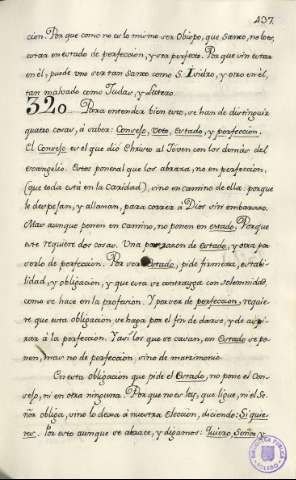 437.
cion. Porque como no es lo mismo ser Obispo, que Santo, no lo es,
estar en estado de perfeccion, y ser perfecto. Porque sin estar
en él, puede uno ser tan Santo como S. Isidro, y otro en él,
tan malvado como Judas, y Lutero.
320 Para entender bien esto, se han de distinguir
quatro cosas, à saber: Consejo, Voto, Estado, y perfeccion.
El Consejo es el que dió Christo al Joven con los demàs del
evangelio. Estos ponen al que los abraza, no en perfeccion,
(que toda està en la Caridad), sino en camino de ella: porque
le despejan, y allanan, para correr à Dios sin embarazo.
Mas aunque ponen en camino, no ponen en estado. Porque
este requiere dos cosas. Una por razon de Estado, y otra por
serlo de perfeccion. Por ser Estado, pide firmeza, estabi-
lidad, y obligacion, y que esta se contrayga con solemnidad,
como se hace en la profesion. Y por ser de perfeccion, requie-
re que esta obligacion se haga por el fin de darse, y de aspi-
rar à la perfeccion. Y así los que se casan, en Estado se po-
nen, mas no de perfeccion, sino de matrimonio.
En esta obligacion que pide el Estado, no pone el Con-
sejo, ni en otra ninguna. Porque no es ley, que ligue, ni el Se-
ñor obliga, sino lo dexa à nuestra eleccion, diciendo: Si quie-
res. Por esto aunque se abrace, y digamos: Quiero Señor, y
BIBLIOTECA PUBLICA